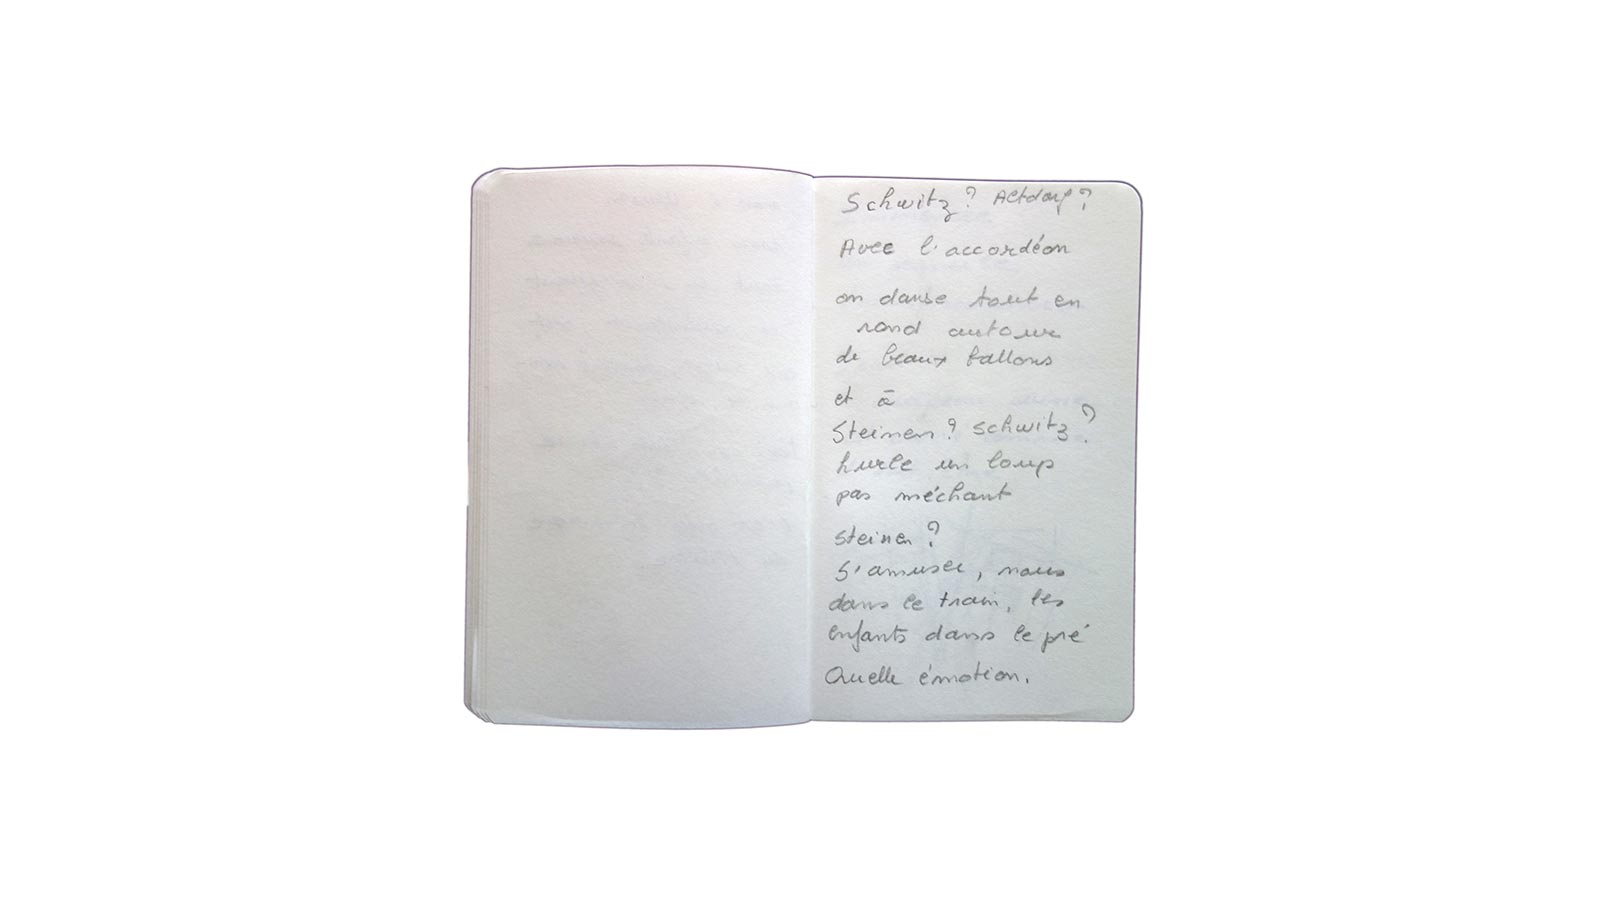 Schwitz? Altdorf?
Avec l'accordéon
on danse tout en
rond autour
de beaux ballons
et à
Steinen? Schwitz?
hurle un loup
pas méchant
Steinen?
S'amuser, nous
dans le train, les
enfants dans le pré
Quelle émotion.